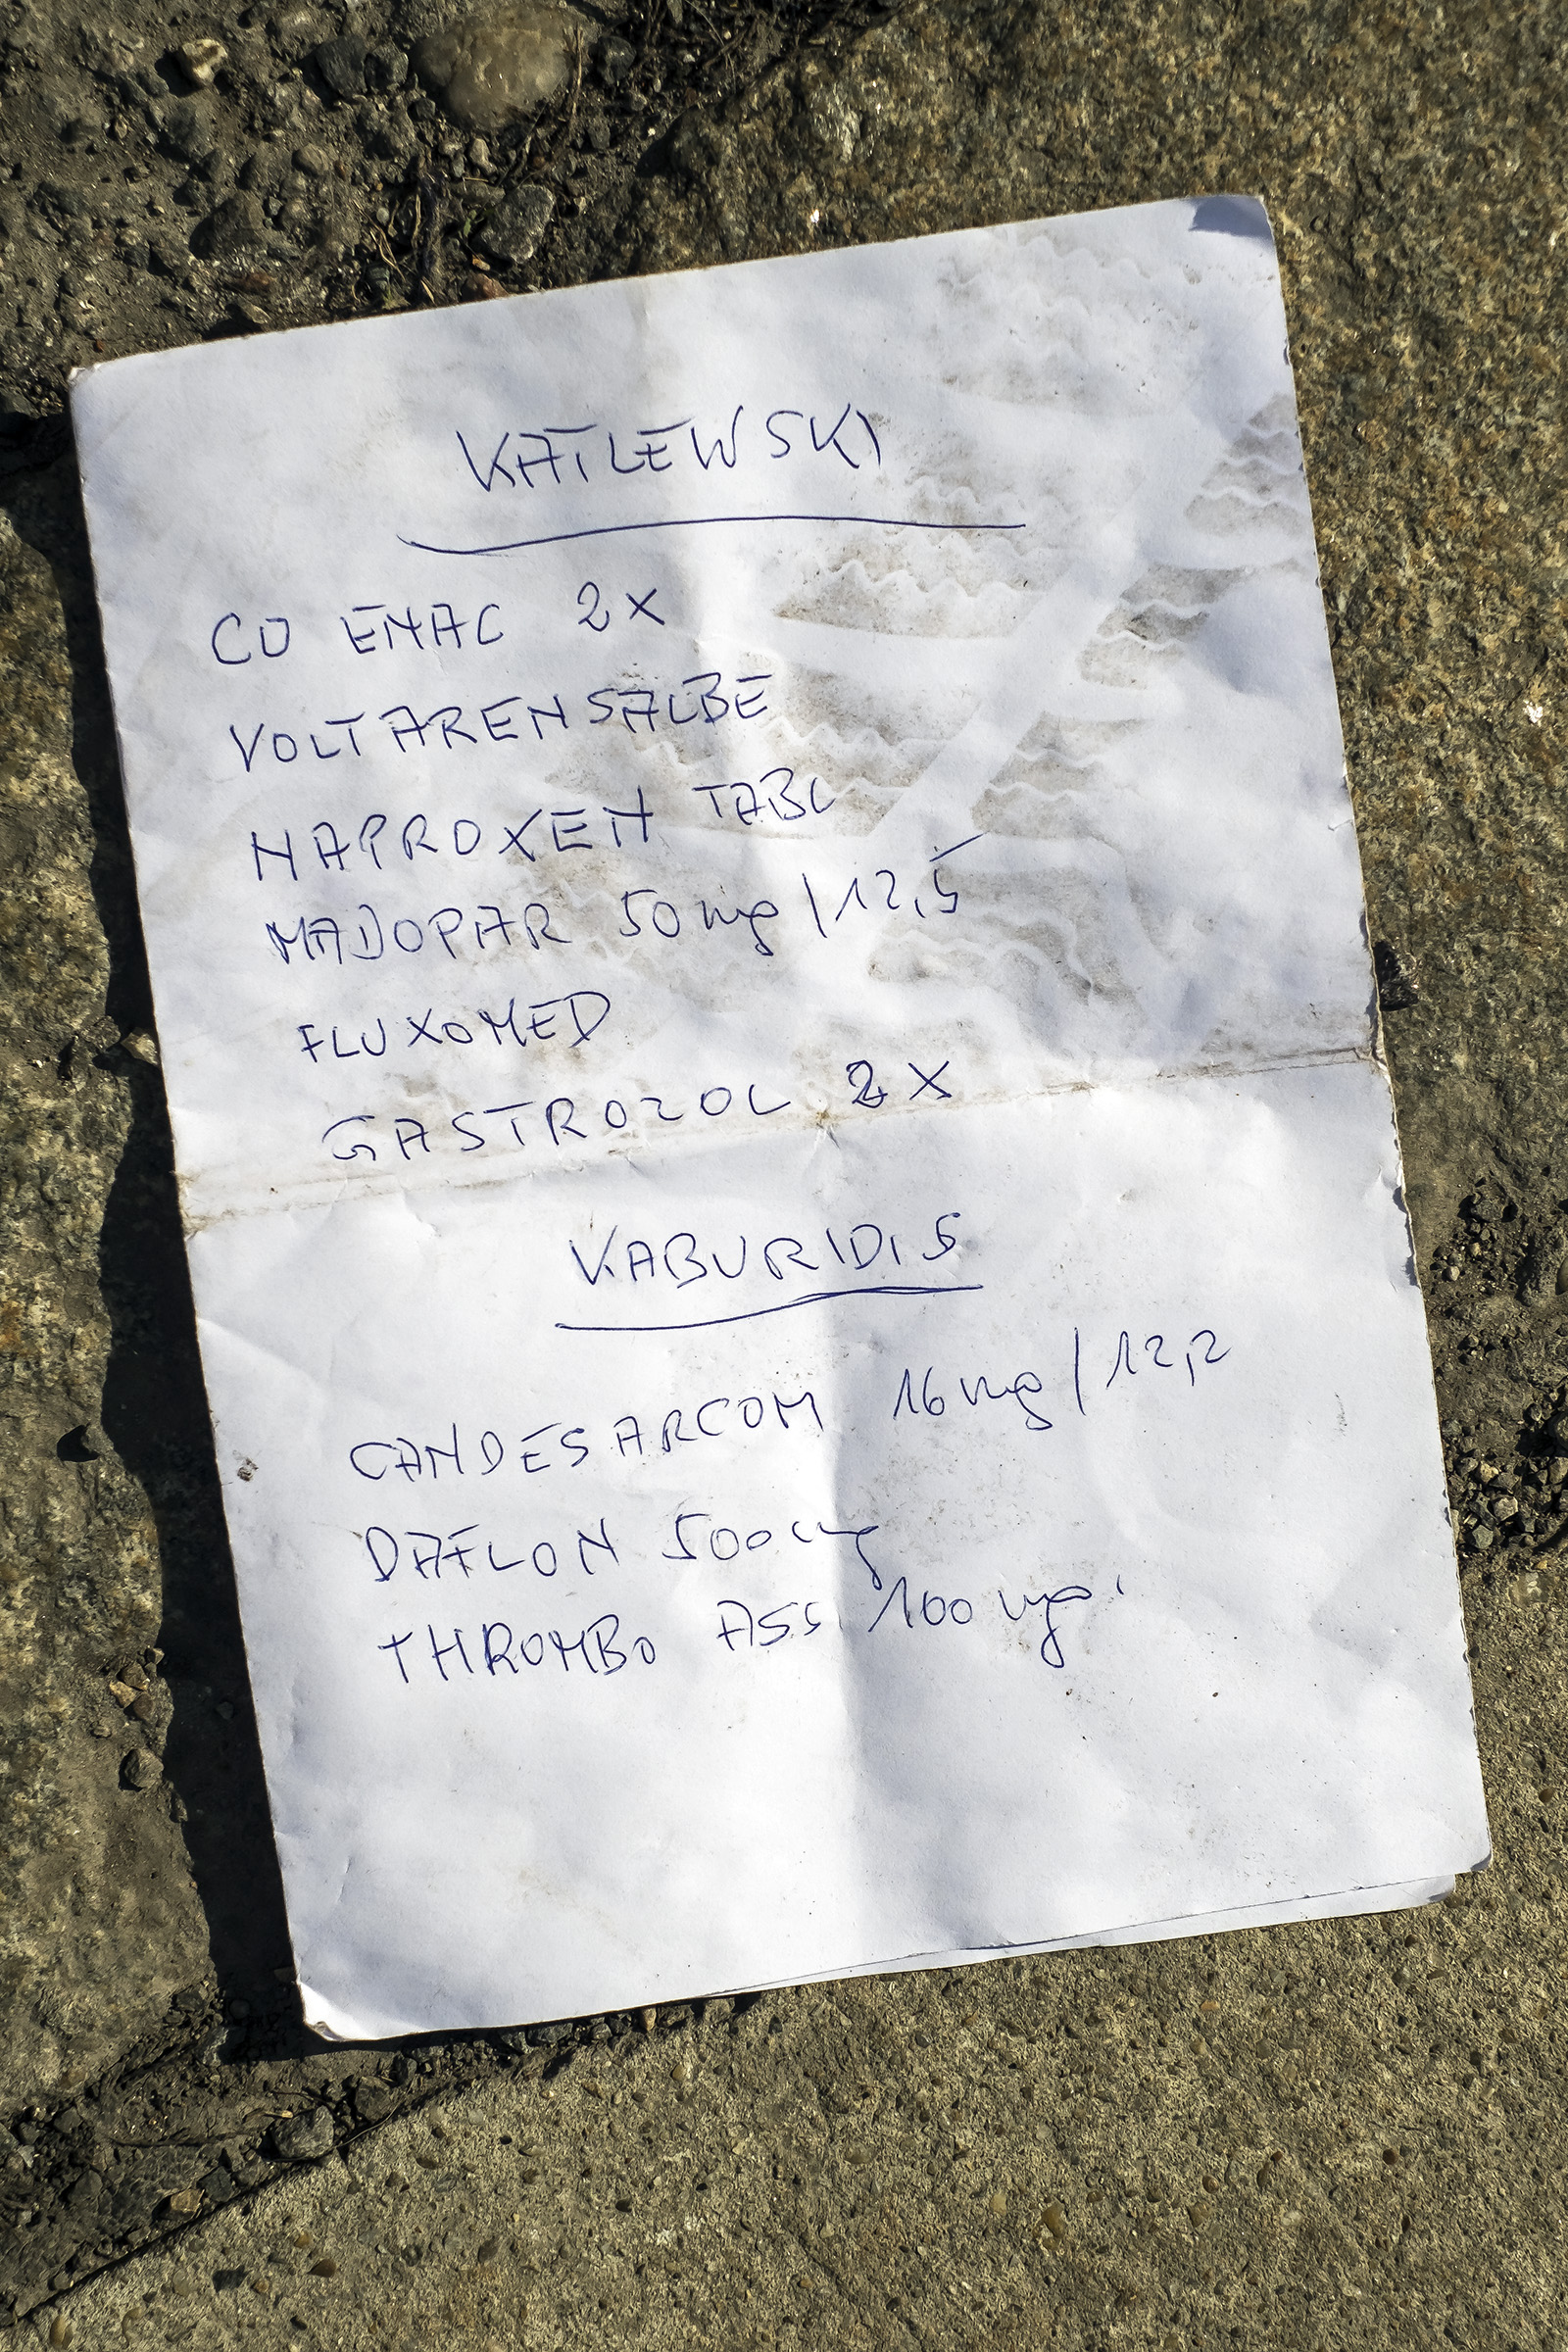 KATLEWSKI
CO ENAC 2X
VOLTARENSALBE
NAPROXEN TABL
MADOPAR 50mg/12,5
FLUXOMED
GASTROZOL 2X
KABURIDIS
CANDESARCOM 16mg/12,2
DAFLON 500mg
THROMBO ASS 100mg